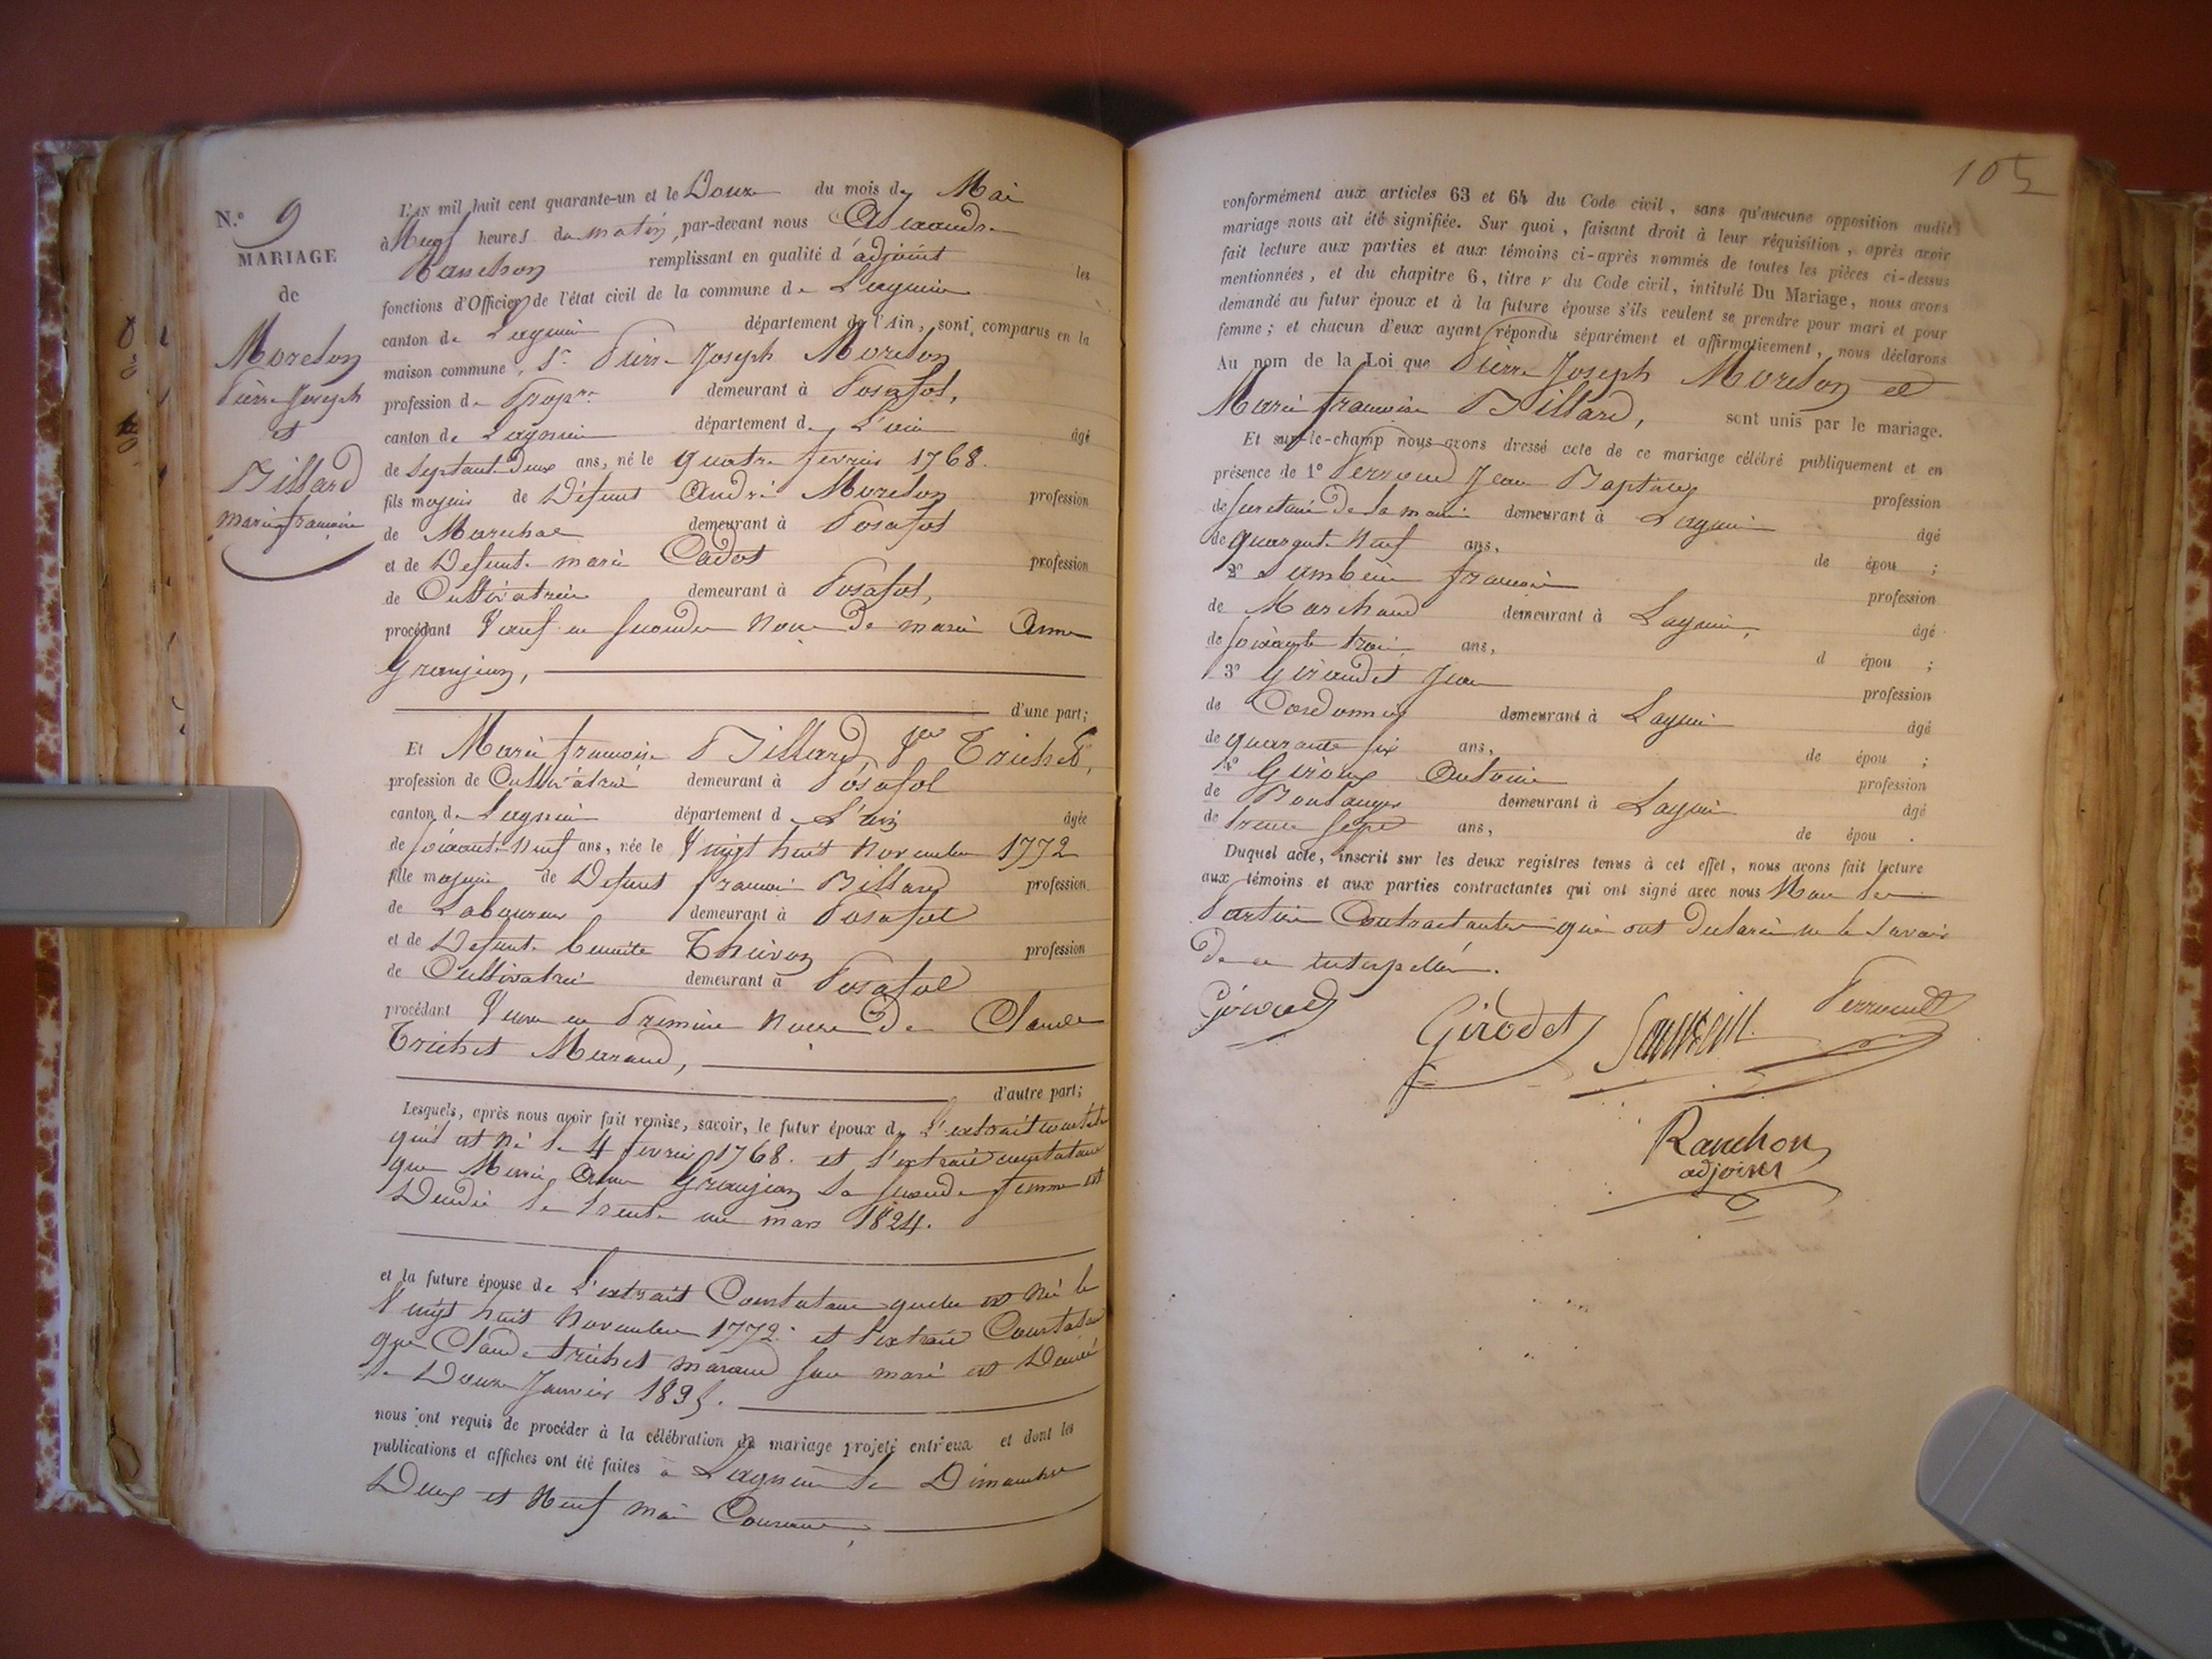 N.º 9
MARIAGE
de
Moreton
Pierre Joseph
et
Billard
marie francoise
L'AN mil huit cent quarante-un et le Douze du mois de Mai
à Neuf heures du matin, par-devant nous Alexandre
Ranchon remplissant en qualité d'adjoint les
fonctions d'Officier de l'état civil de la commune de Lagnieu
canton de Lagnieu département de l'Ain, sont comparus en la
maison commune, Sr Pierre Joseph Moreton
profession de Propre demeurant à Posafol,
canton de Lagnieu département de L'ain âgé
de Septante Deux ans, né le quatre fevrier 1768.
fils majeur de Défunt André Moreton profession
de Marechal demeurant à Posafol
et de Defunte marie Cadot profession
de Cultivatrice demeurant à Posafol,
procédant Veuf en secondes Noces de marie Anne
Granjean,
d'une part;
Et Marie francoise Billard, Ve Trichet,
profession de Cultivatrice demeurant à Posafol
canton de Lagnieu département de L'ain âgée
de soixante Neuf ans, née le Vingt huit Novembre 1772
fille majeure de Defunt francois Billard profession
de Laboureur demeurant à Posafol
et de Defunte benoite Thevon profession
de Cultivatrice demeurant à Posafol
procédant Veuve en Premiere Noces De Claude
Trichet Maraud,
d'autre part;
Lesquels, après nous avoir fait remise, savoir, le futur époux de L'extrait constatant
qu'il est né le 4 fevrier 1768. et l'extrait constatant
que Marie Anne Granjean sa seconde femme est
Décédée le trente un mars 1824.
et la future épouse de L'extrait Constatant quelle est Née le
Vingt huit Novembre 1772. et l'extrait Constatant
que Claude trichet maraud son mari est Décédé
le Douze Janvier 1835.
nous ont requis de procéder à la célébration du mariage projeté entr'eux et dont les
publications et affiches ont été faites à Lagnieu les Dimanches
Deux et Neuf mai Courant,
105
conformément aux articles 63 et 64 du Code civil, sans qu'aucune opposition audit
mariage nous ait été signifiée. Sur quoi, faisant droit à leur réquisition, après avoir
fait lecture aux parties et aux témoins ci-après nommés de toutes les pièces ci-dessus
mentionnées, et du chapitre 6, titre v du Code civil, intitulé Du Mariage, nous avons
demandé au futur époux et à la future épouse s'ils veulent se prendre pour mari et pour
femme; et chacun d'eux ayant répondu séparément et affirmativement, nous déclarons
Au nom de la Loi que Pierre Joseph Moreton et
Marie francoise Billard, sont unis par le mariage.
Et sur-le-champ nous avons dressé acte de ce mariage célébré publiquement et en
présence de 1º Perroud Jean Baptiste profession
de secretaire De la mairie demeurant à Lagnieu âgé
de quarante Neuf ans, de épou ;
2º francois profession
de Marchand demeurant à Lagnieu, âgé
de soixante trois ans, d épou ;
3º Giraudet Jean profession
de Cordonnier demeurant à Lagnieu âgé
de quarante six ans, de épou ;
4º Giroux Antoine profession
de Boulanger demeurant à Lagnieu âgé
de trente sept ans, de épou .
Duquel acte, inscrit sur les deux registres tenus à cet effet, nous avons fait lecture
aux témoins et aux parties contractantes qui ont signé avec nous Non les
Parties Contractantes qui ont Declaré ne le savoir
De ce interpellés.
Girodet Perroud
Ranchon
adjoint